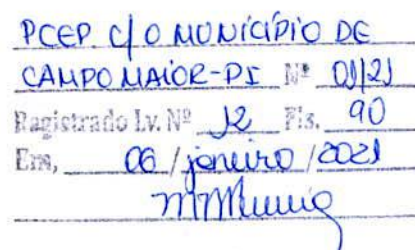 PCEP c/ O MUNICÍPIO DE
CAMPO MAIOR-PI Nº 01/21
Registrado Lv. Nº 12 Fls. 90
Em, 06 / janeiro / 2021